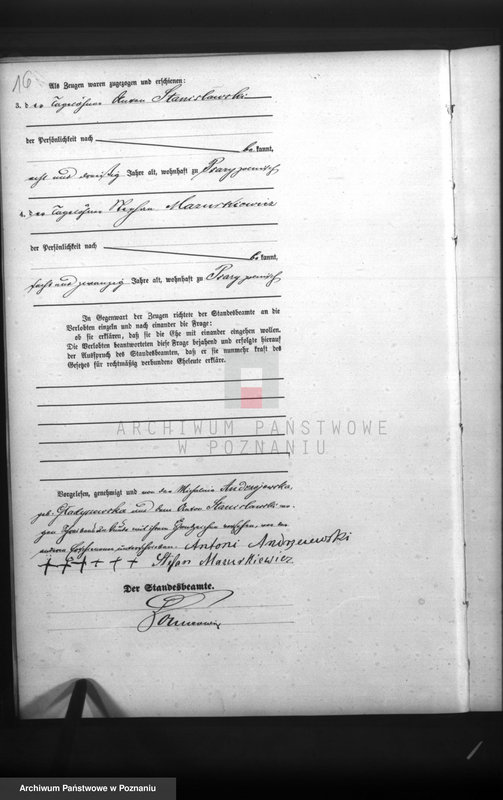 16
Als Zeugen waren zugezogen und erschienen:
3. der Tagelöhner Anton Stanislawski
der Persönlichkeit nach bekannt,
acht und dreißig Jahre alt, wohnhaft zu Psary polnisch
4. der Tagelöhner Stephan Mazurkiewicz
der Persönlichkeit nach bekannt,
sechs und zwanzig Jahre alt, wohnhaft zu Psary polnisch
In Gegenwart der Zeugen richtete der Standesbeamte an die
Verlobten einzeln und nach einander die Frage:
ob sie erklären, daß sie die Ehe mit einander eingehen wollen.
Die Verlobten beantworteten diese Frage bejahend und erfolgte hierauf
der Ausspruch des Standesbeamten, daß er sie nunmehr kraft des
Gesetzes für rechtmäßig verbundene Eheleute erkläre.
ARCHIWUM PAŃSTWOWE
W POZNANIU
Vorgelesen, genehmigt und von der Michalina Andrzejewska,
geb: und dem Anton Stanislawski we-
gen mit ihrem Handzeichen versehen, von den
anderen unterschrieben. Antoni Andrzejewski
+++ +++ Stefan Mazurkiewicz
Der Standesbeamte.
Archiwum Państwowe w Poznaniu